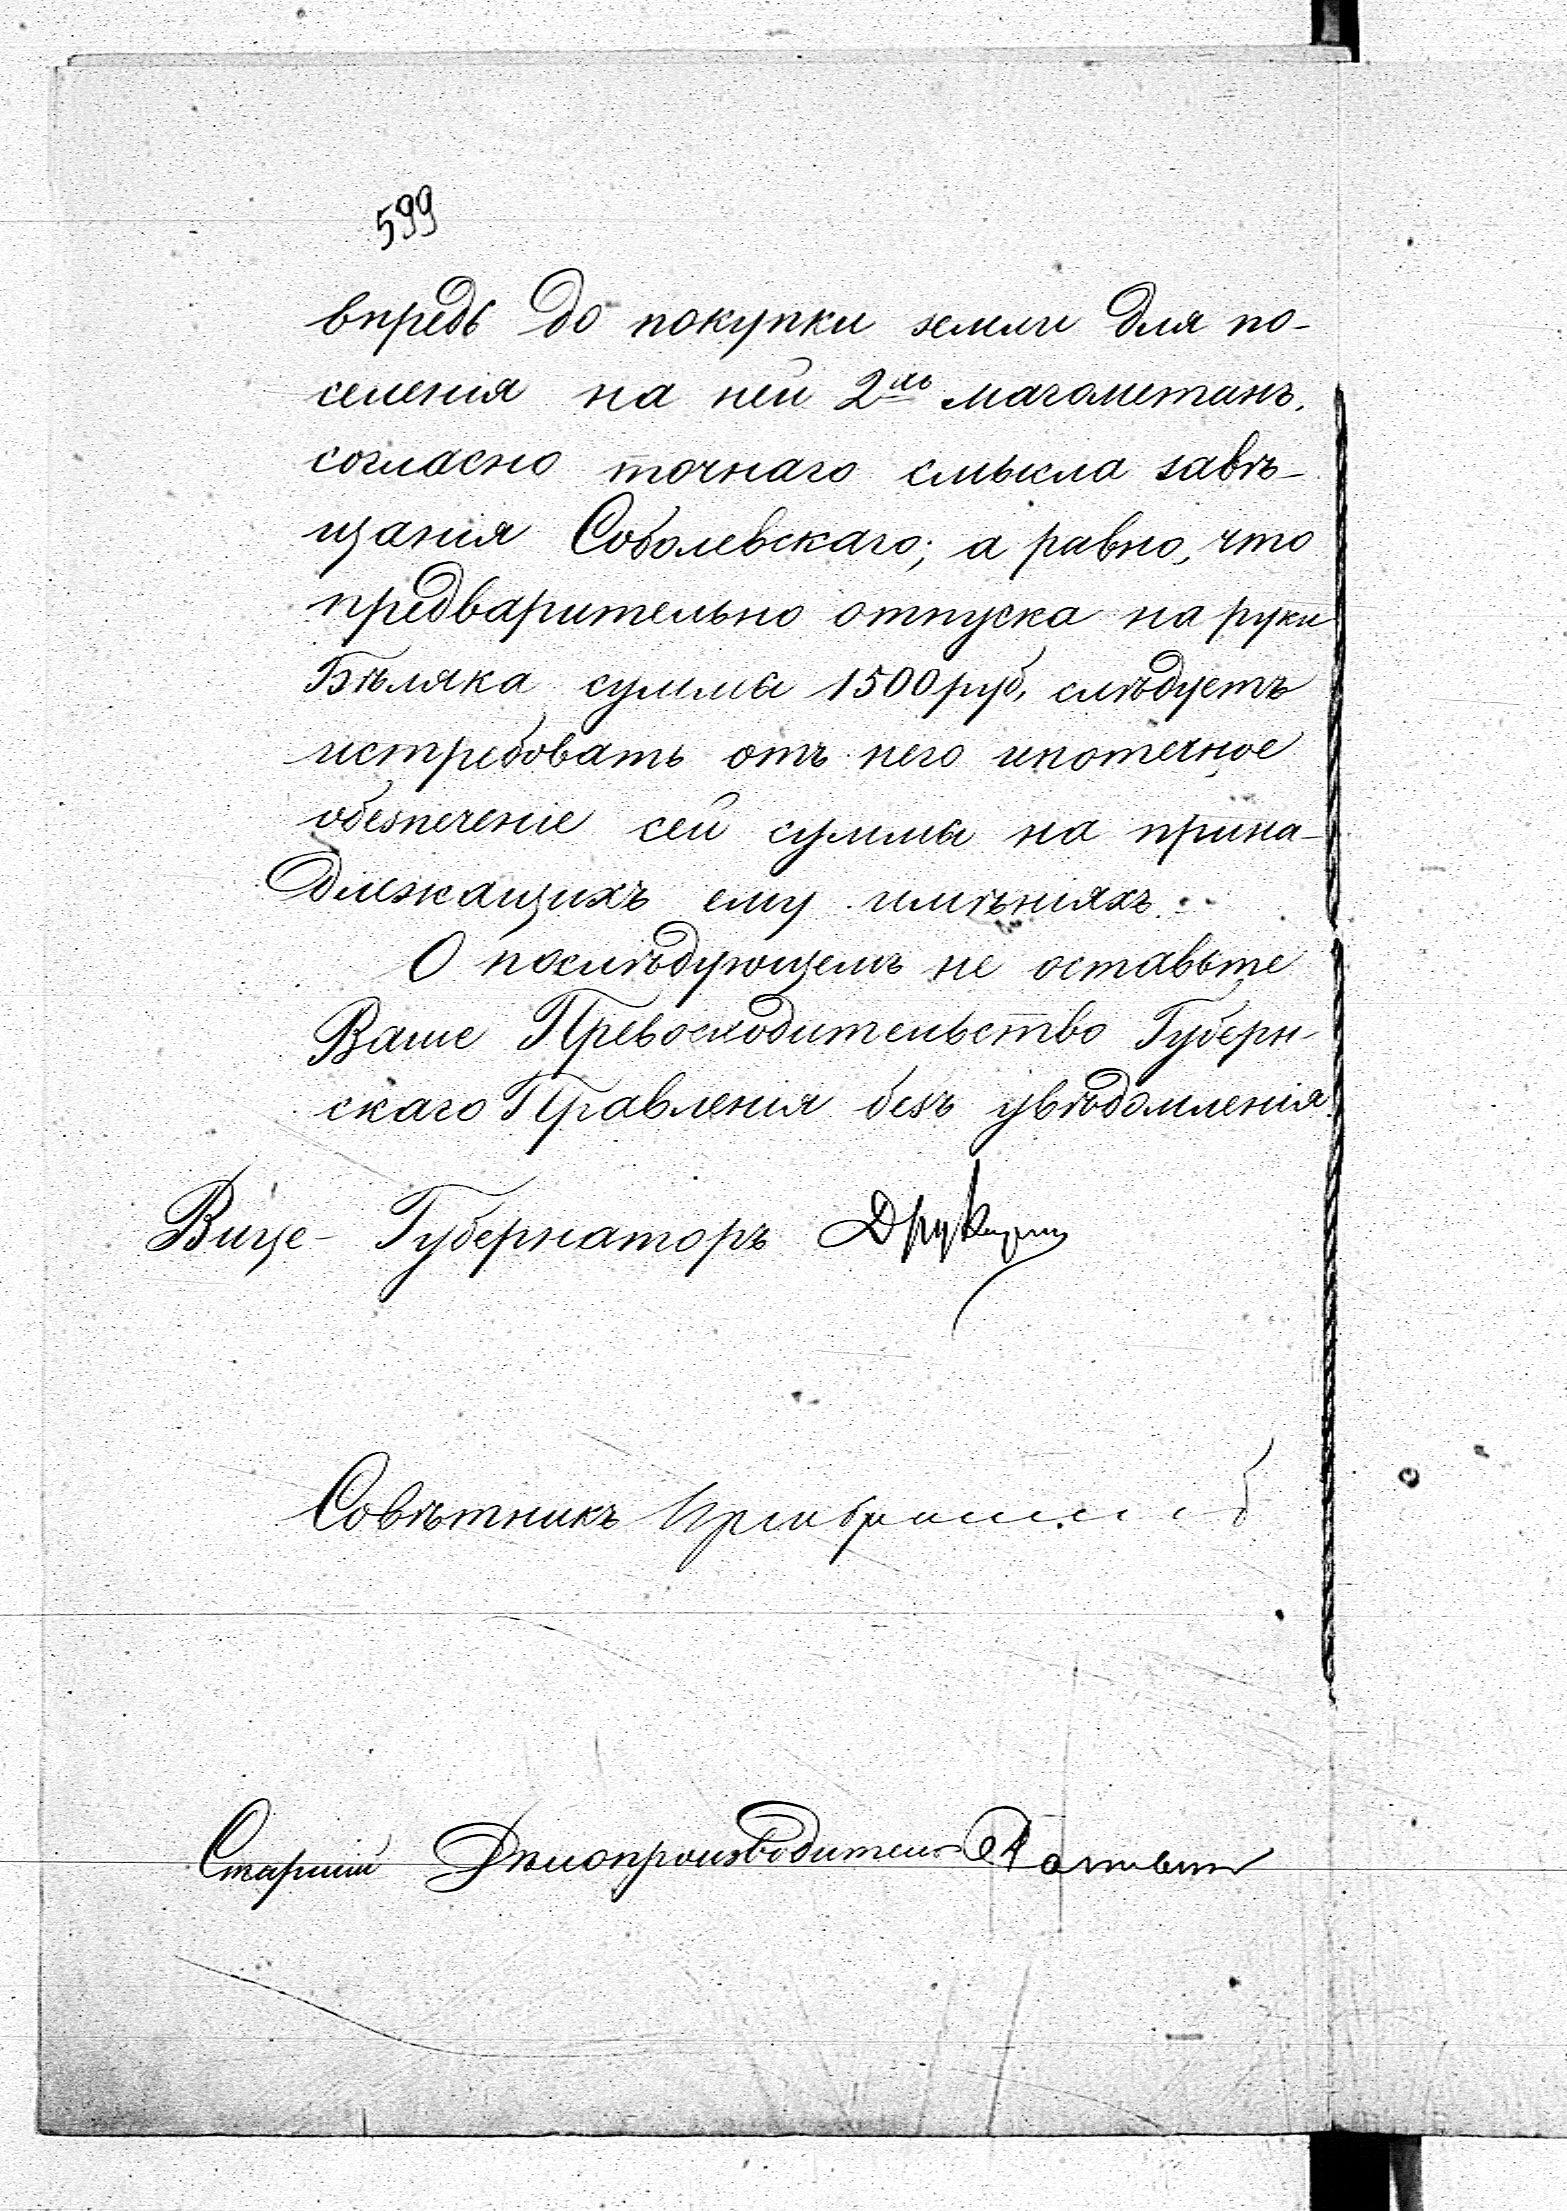 599
впредь до покупки земли для по-
селенія на ней 2хъ магометанъ,
согласно точнаго смысла завѣ-
щанія Соболевскаго; а равно, что
предварительно отпуска на руки
Бѣляка суммы 1500 руб, слѣдуетъ
истребовать отъ него ипотечное
обезпеченіе сей суммы на прина-
длежащихъ ему имѣніяхъ.
О послѣдующемъ не оставьте
Ваше Превосходительство Губерн-
скаго Правленія безъ увѣдомленія.
Вице-Губернаторъ
Совѣтникъ
Старшій Дѣлопроизводитель